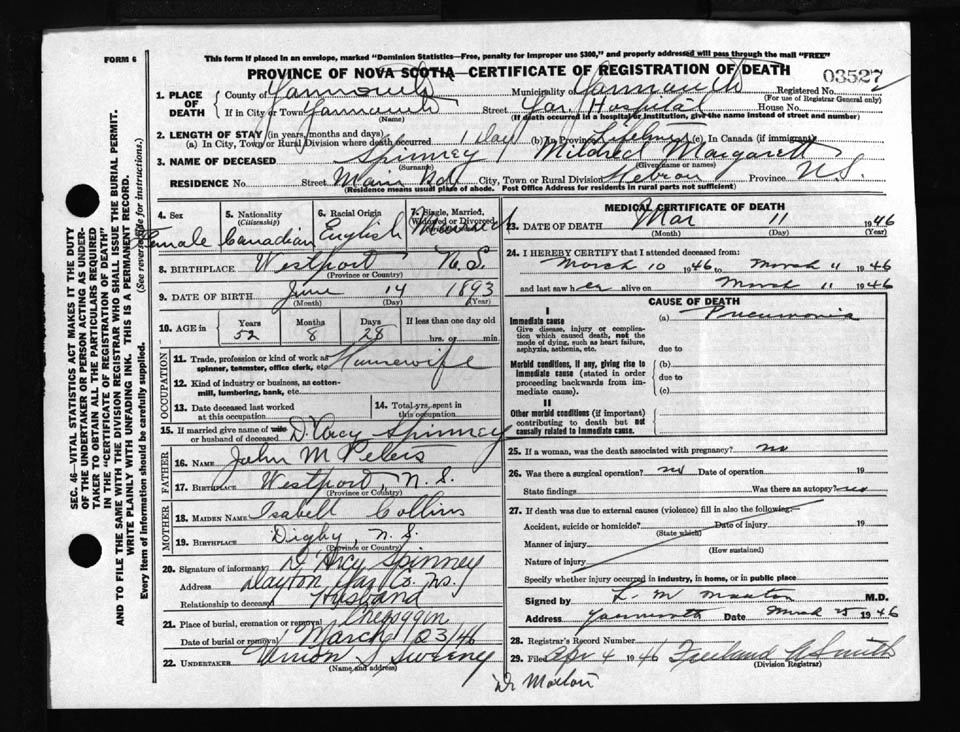 FORM 6
This form if placed in an envelope, marked "Dominion Statistics—Free, penalty for improper use $300," and properly addressed will pass through the mail "FREE"
PROVINCE OF NOVA SCOTIA—CERTIFICATE OF REGISTRATION OF DEATH
03527
1. PLACE OF DEATH
County of Yarmouth Municipality of Yarmouth Registered No.
(For use of Registrar General only)
If in City or Town Yarmouth Street Yar. Hospital House No.
(Name) (If death occurred in a hospital or institution, give the name instead of street and number)
2. LENGTH OF STAY (in years, months and days)
(a) In City, Town or Rural Division where death occurred 1 Day (b) In Province Lifetime (c) In Canada (if immigrant)
3. NAME OF DECEASED Spinney Mildred Margaret
(Surname) (Given name or names)
RESIDENCE No. Street Main Rd City, Town or Rural Division Hebron Province N.S.
Residence means usual place of abode. Post Office Address for residents in rural parts not sufficient)
4. Sex Female
5. Nationality (Citizenship) Canadian
6. Racial Origin English
7. Single, Married, Widowed or Divorced Married
8. BIRTHPLACE Westport N.S.
(Province or Country)
9. DATE OF BIRTH June 14 1893
(Month) (Day) (Year)
10. AGE in Years 52 Months 8 Days 28 If less than one day old hrs. or min.
OCCUPATION
11. Trade, profession or kind of work as spinner, teamster, office clerk, etc. Housewife
12. Kind of industry or business, as cotton-mill, lumbering, bank, etc.
13. Date deceased last worked at this occupation
14. Total yrs. spent in this occupation
15. If married give name of wife or husband of deceased D'Arcy Spinney
FATHER
16. NAME John M Peters
17. BIRTHPLACE Westport, N.S.
(Province or Country)
MOTHER
18. MAIDEN NAME Isabell Collins
19. BIRTHPLACE Digby, N.S.
(Province or Country)
20. Signature of informant D'Arcy Spinney
Address Dayton Yar. Co. N.S.
Relationship to deceased Husband
21. Place of burial, cremation or removal Chegoggin
Date of burial or removal March 23/46
22. UNDERTAKER Vernon S. Sweeney
(Name and address)
MEDICAL CERTIFICATE OF DEATH
23. DATE OF DEATH Mar 11 1946
(Month) (Day) (Year)
24. I HEREBY CERTIFY that I attended deceased from:
March 10 1946 to March 11 1946
and last saw her alive on March 11 1946
CAUSE OF DEATH
I
Immediate cause (a) Pneumonia
Give disease, injury or complication which caused death, not the mode of dying, such as heart failure, asphyxia, asthenia, etc.
due to
Morbid conditions, if any, giving rise to immediate cause (stated in order proceeding backwards from immediate cause).
(b)
due to
(c)
II
Other morbid conditions (if important) contributing to death but not causally related to immediate cause.
25. If a woman, was the death associated with pregnancy? no
26. Was there a surgical operation? no Date of operation 19
State findings Was there an autopsy? no
27. If death was due to external causes (violence) fill in also the following:
Accident, suicide or homicide? Date of injury 19
(State which)
Manner of injury
(How sustained)
Nature of injury
Specify whether injury occurred in industry, in home, or in public place
Signed by M.D.
Address Yarmouth Date March 25 1946
28. Registrar's Record Number
29. Filed Apr 4 1946 Freeland A Smith
(Division Registrar)
Dr Morton
SEC. 46—VITAL STATISTICS ACT MAKES IT THE DUTY
OF THE UNDERTAKER OR PERSON ACTING AS UNDER-
TAKER TO OBTAIN ALL THE PARTICULARS REQUIRED
IN THE "CERTIFICATE OF REGISTRATION OF DEATH"
AND TO FILE THE SAME WITH THE DIVISION REGISTRAR WHO SHALL ISSUE THE BURIAL PERMIT.
WRITE PLAINLY WITH UNFADING INK. THIS IS A PERMANENT RECORD.
Every item of information should be carefully supplied. (See reverse side for instructions.)